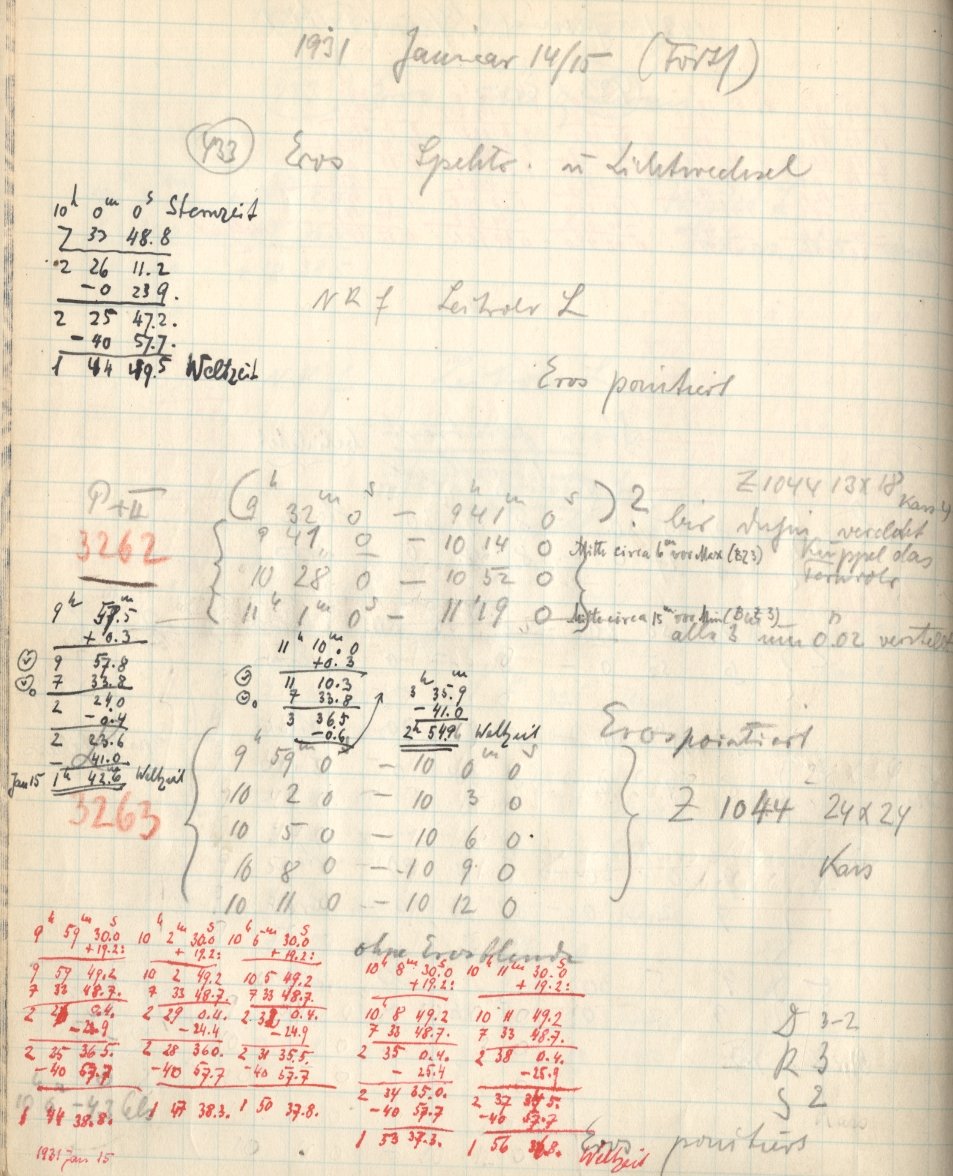 1931 Januar 14/15 (Forts)
433 Eros Spektr. u Lichtwechsel
10h 0m 0s Sternzeit
7 33 48.8
2 26 11.2
-0 23 9.
2 25 47.2.
-40 57.7.
1 44 49.5 Weltzeit
NR f Leitrohr L
Eros pointiert
P+II
3262
(9h 32m 0s - 9h 41m 0s)?
Z 1044 13x18
bis dahin verdeckt
Kuppel das
Fernrohr
9 41 0 - 10 14 0 Mitte circa 6m vor Max (BZ 3)
10 28 0 - 10 52 0
11h 1m 0s - 11 19 0 Mitte circa 15m vor Min (BZ 3)
alle 3 um 0.02 verstellt
9h 57.5m
+0.3
9 57.8
7 33.8
2 24.0
-0.4
2 23.6
-41.0
Jan 15 1h 42.6m Weltzeit
11h 10m.0
+0.3
11 10.3
7 33.8
3 36.5
-0.6
3h 35.9m
-41.0
2h 54.9 Weltzeit
3263
9h 59m 0s - 10h 0m 0s
10 2 0 - 10 3 0
10 5 0 - 10 6 0.
10 8 0 - 10 9 0
10 11 0 - 10 12 0
Eros pointiert
Z 1044 24x24
Kars
ohne Erosblende
9h 59m 30.0s
+19.2:
9 59 49.2
7 33 48.7.
2 26 0.4.
-24.9
2 25 36.5.
-40 57.7
1 44 38.8.
1931 Jan 15
10h 2m 30.0s
+19.2:
10 2 49.2
7 33 48.7.
2 29 0.4.
-24.4
2 28 36.0.
-40 57.7
1 47 38.3.
10h 6m 30.0s
+19.2:
10 5 49.2
7 33 48.7.
2 32 0.4.
-24.9
2 31 35.5.
-40 57.7
1 50 37.8.
10h 8m 30.0s
+19.2:
10 8 49.2
7 33 48.7.
2 35 0.4.
-25.4
2 34 35.0.
-40 57.7
1 53 37.3.
10h 11m 30.0s
+19.2:
10 11 49.2
7 33 48.7.
2 38 0.4.
-25.9
2 37 34.5.
-40 57.7
1 56 36.8.
Weltzeit
D 3-2
R 3
S 2
Eros pointiert